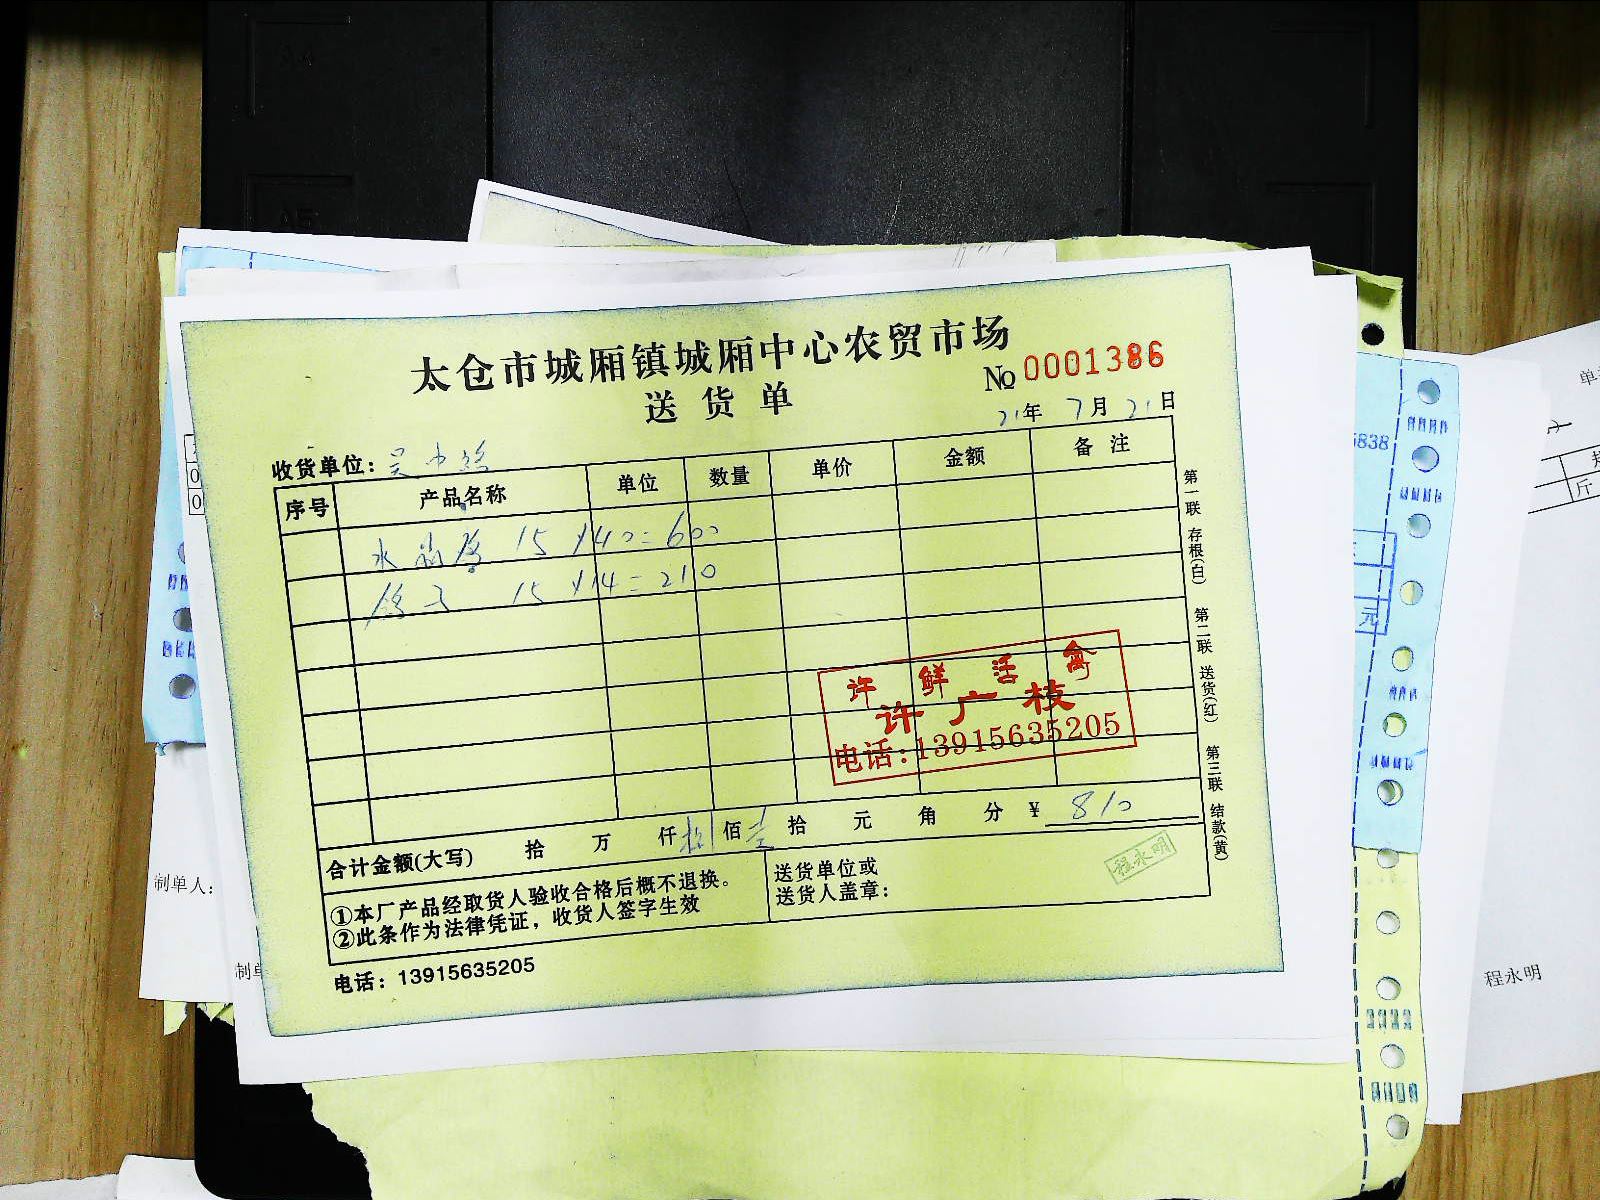 太仓市城厢镇城厢中心农贸市场
送货单
№ 0001386
21年 7月 21日
收货单位：吴中路
序号 产品名称 单位 数量 单价 金额 备注
水 15 × 40 = 600
鸽子 15 × 14 = 210
许鲜活禽
许广枝
电话:13915635205
合计金额(大写) 拾 万 仟 捌 佰 壹 拾 元 角 分 ¥ 810
①本厂产品经取货人验收合格后概不退换。
②此条作为法律凭证，收货人签字生效
送货单位或
送货人盖章：
程永明
电话：13915635205
第一联 存根(白) 第二联 送货(红) 第三联 结款(黄)
制单人:
制单
5838
元
单
斤
程永明
A4
A5